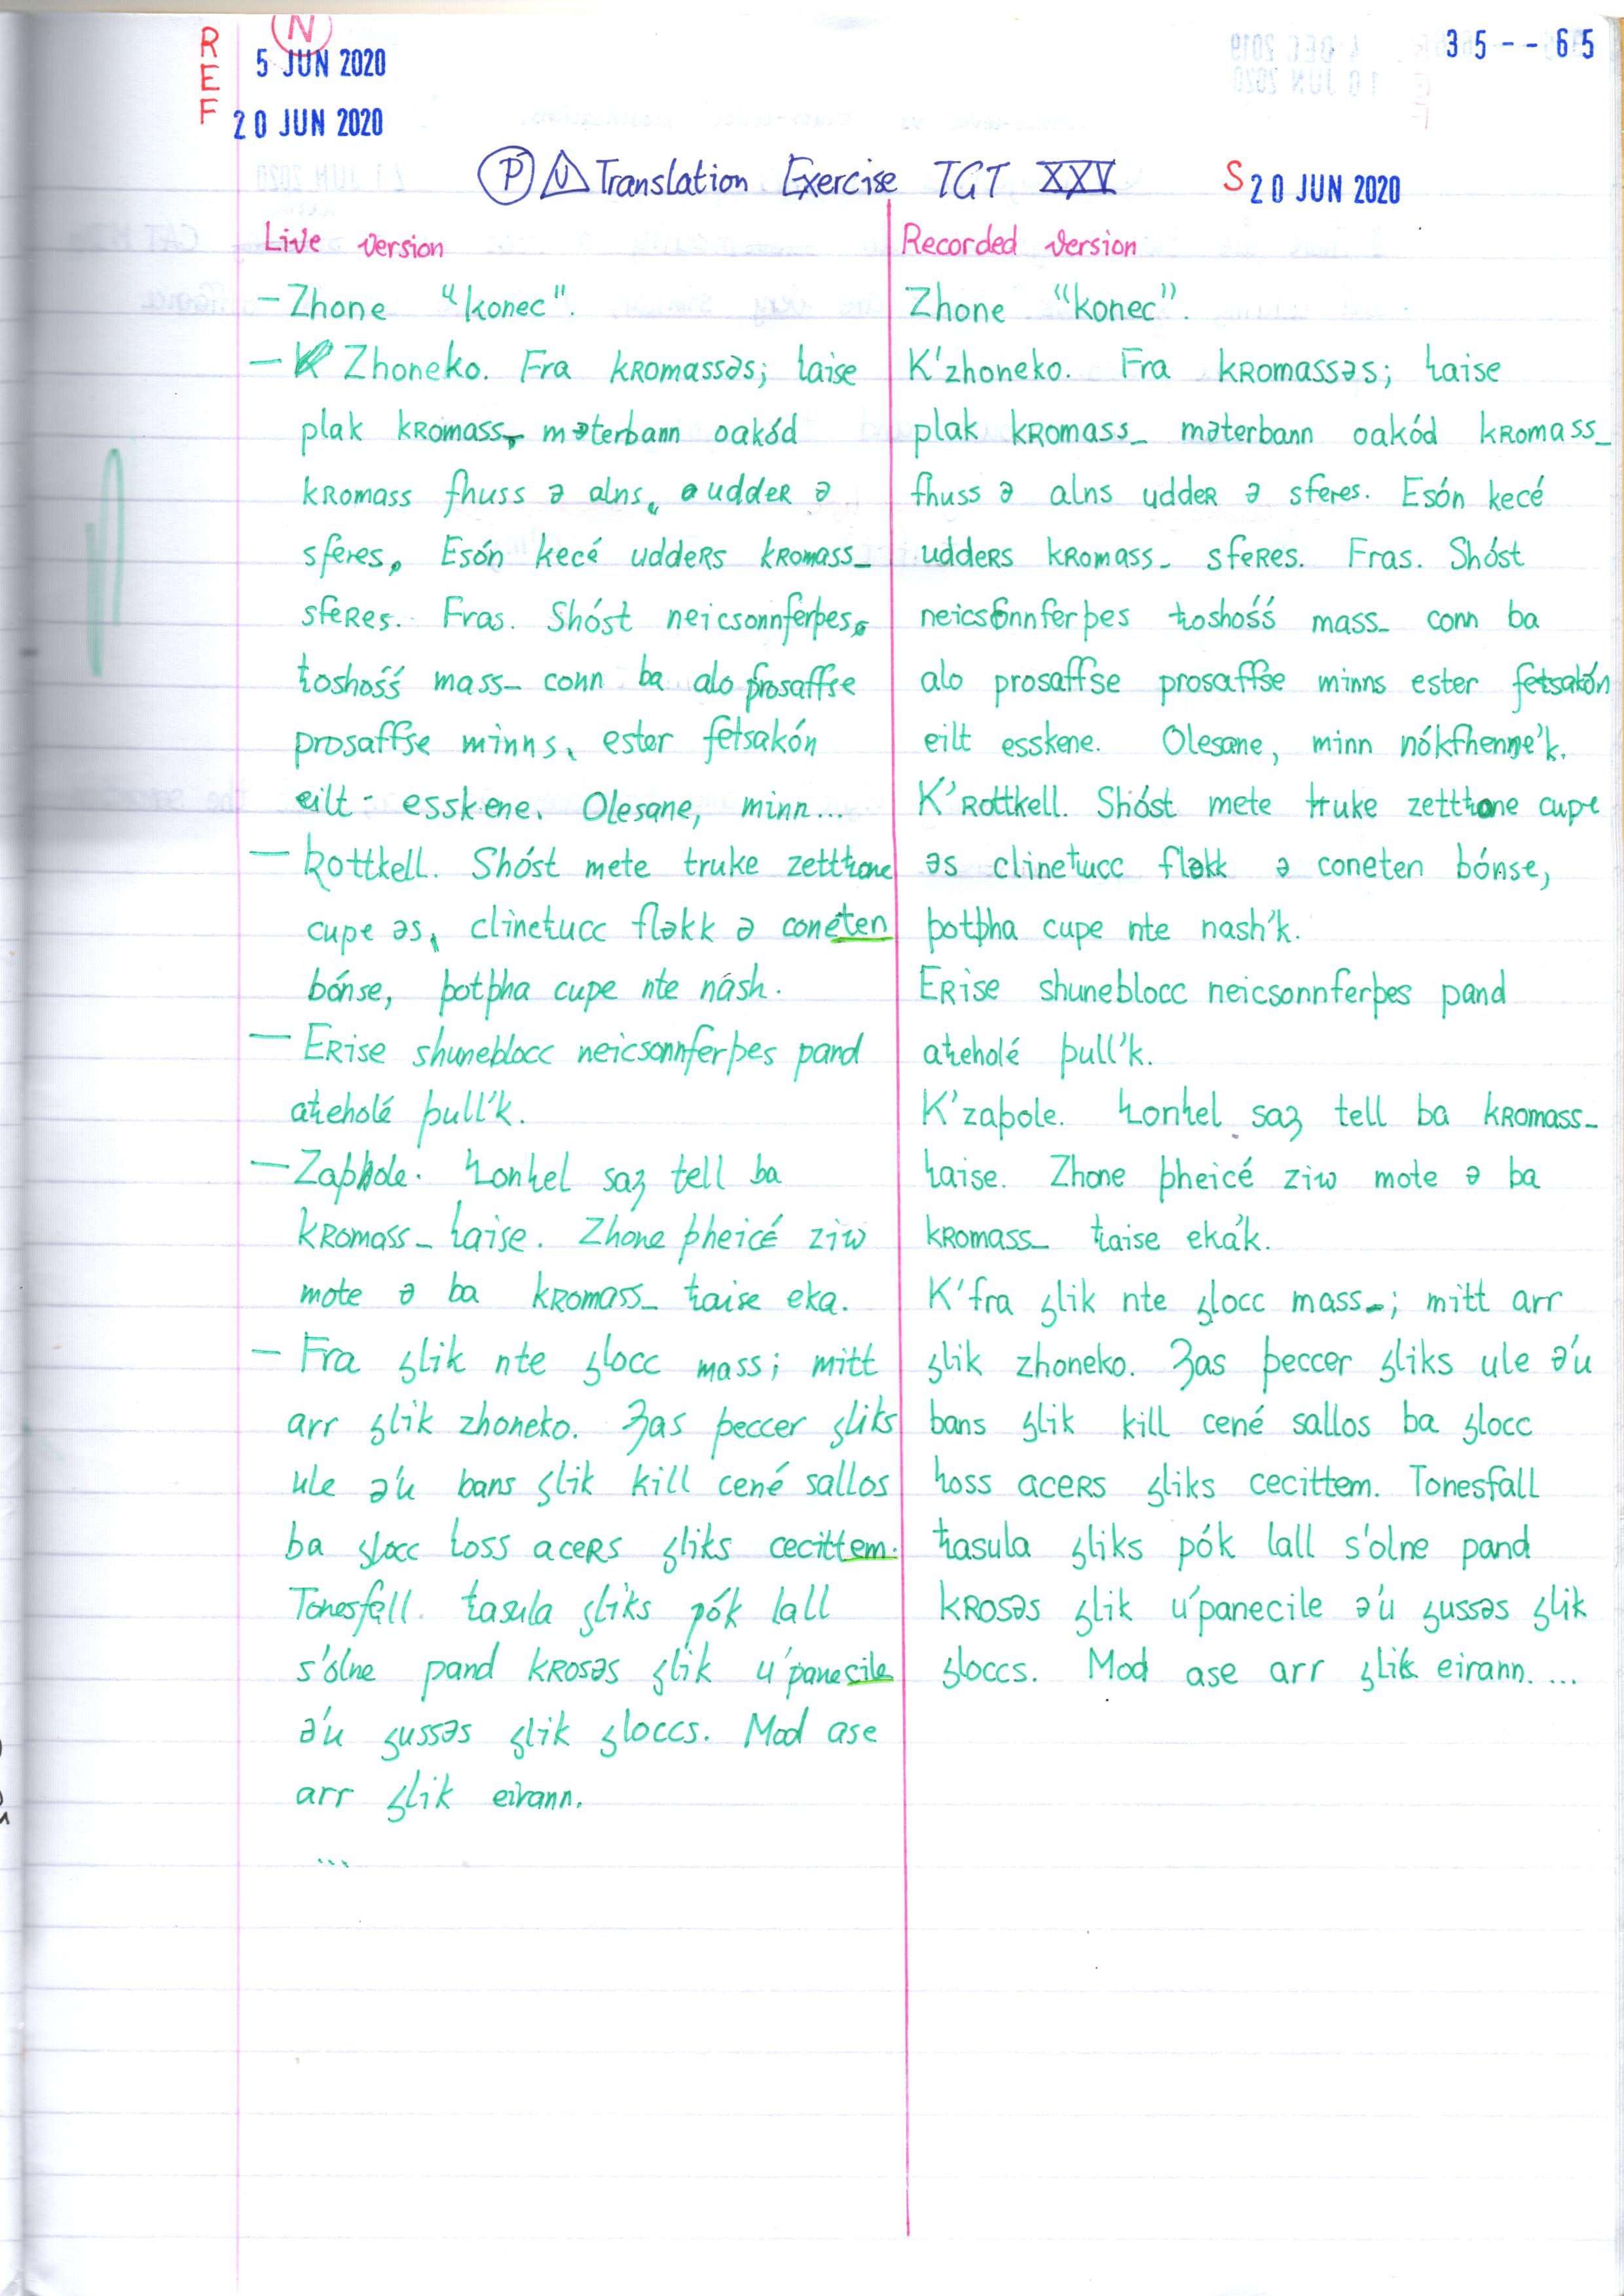 REF
N
5 JUN 2020
20 JUN 2020
35--65
P U Translation Exercise TGT XXV
S 20 JUN 2020
Live version
– Zhone "konec".
– Zhoneko. Fra kʀomassəs; ꞕaise
plak kʀomass_ məterbann oakód
kʀomass fhuss ə alns, udder ə
sferes. Esón kecé uddeʀs kʀomass_
sfeʀes. Fras. Shóst neicsonnferþes
ŧoshośś mass_ conn ba alo prosaffse
prosaffse minns, ester fetsakón
eilt esskene. Olesane, minn...
– Rottkell. Shóst mete truke zettħone
cupe əs, clineŧucc fləkk ə coneten
bónse, þotþha cupe nte nash.
– Eʀise shuneblocc neicsonnferþes pand
aŧeholé þull'k.
– Zaþole. ꞕonħel saʒ tell ba
kʀomass_ ꞕaise. Zhone þheicé ziw
mote ə ba kʀomass_ ŧaise eka.
– Fra ʒlik nte ʒlocc mass; mitt
arr ʒlik zhoneko. Ʒas þeccer ʒliks
ule ə'u bans ʒlik kill cené sallos
ba ʒlocc ꞕoss aceʀs ʒliks cecittem.
Tonesfall ŧasula ʒliks pók lall
s'olne pand kʀosəs ʒlik u'panecile
ə'u ʒussəs ʒlik ʒloccs. Mod ase
arr ʒlik eirann.
...
Recorded version
Zhone "konec".
K'zhoneko. Fra kʀomassəs; ꞕaise
plak kʀomass_ məterbann oakód kʀomass_
fhuss ə alns udder ə sferes. Esón kecé
uddeʀs kʀomass_ sfeʀes. Fras. Shóst
neicsonnferþes ŧoshośś mass_ conn ba
alo prosaffse prosaffse minns ester fetsakón
eilt esskene. Olesane, minn nókfhenne'k.
K'ʀottkell. Shóst mete truke zettħone cupe
əs clineŧucc fləkk ə coneten bónse,
þotþha cupe nte nash'k.
Eʀise shuneblocc neicsonnferþes pand
aŧeholé þull'k.
K'zaþole. ꞕonħel saʒ tell ba kʀomass_
ꞕaise. Zhone þheicé ziw mote ə ba
kʀomass_ ŧaise eka'k.
K'fra ʒlik nte ʒlocc mass_; mitt arr
ʒlik zhoneko. Ʒas þeccer ʒliks ule ə'u
bans ʒlik kill cené sallos ba ʒlocc
ꞕoss aceʀs ʒliks cecittem. Tonesfall
ŧasula ʒliks pók lall s'olne pand
kʀosəs ʒlik u'panecile ə'u ʒussəs ʒlik
ʒloccs. Mod ase arr ʒlik eirann. ...